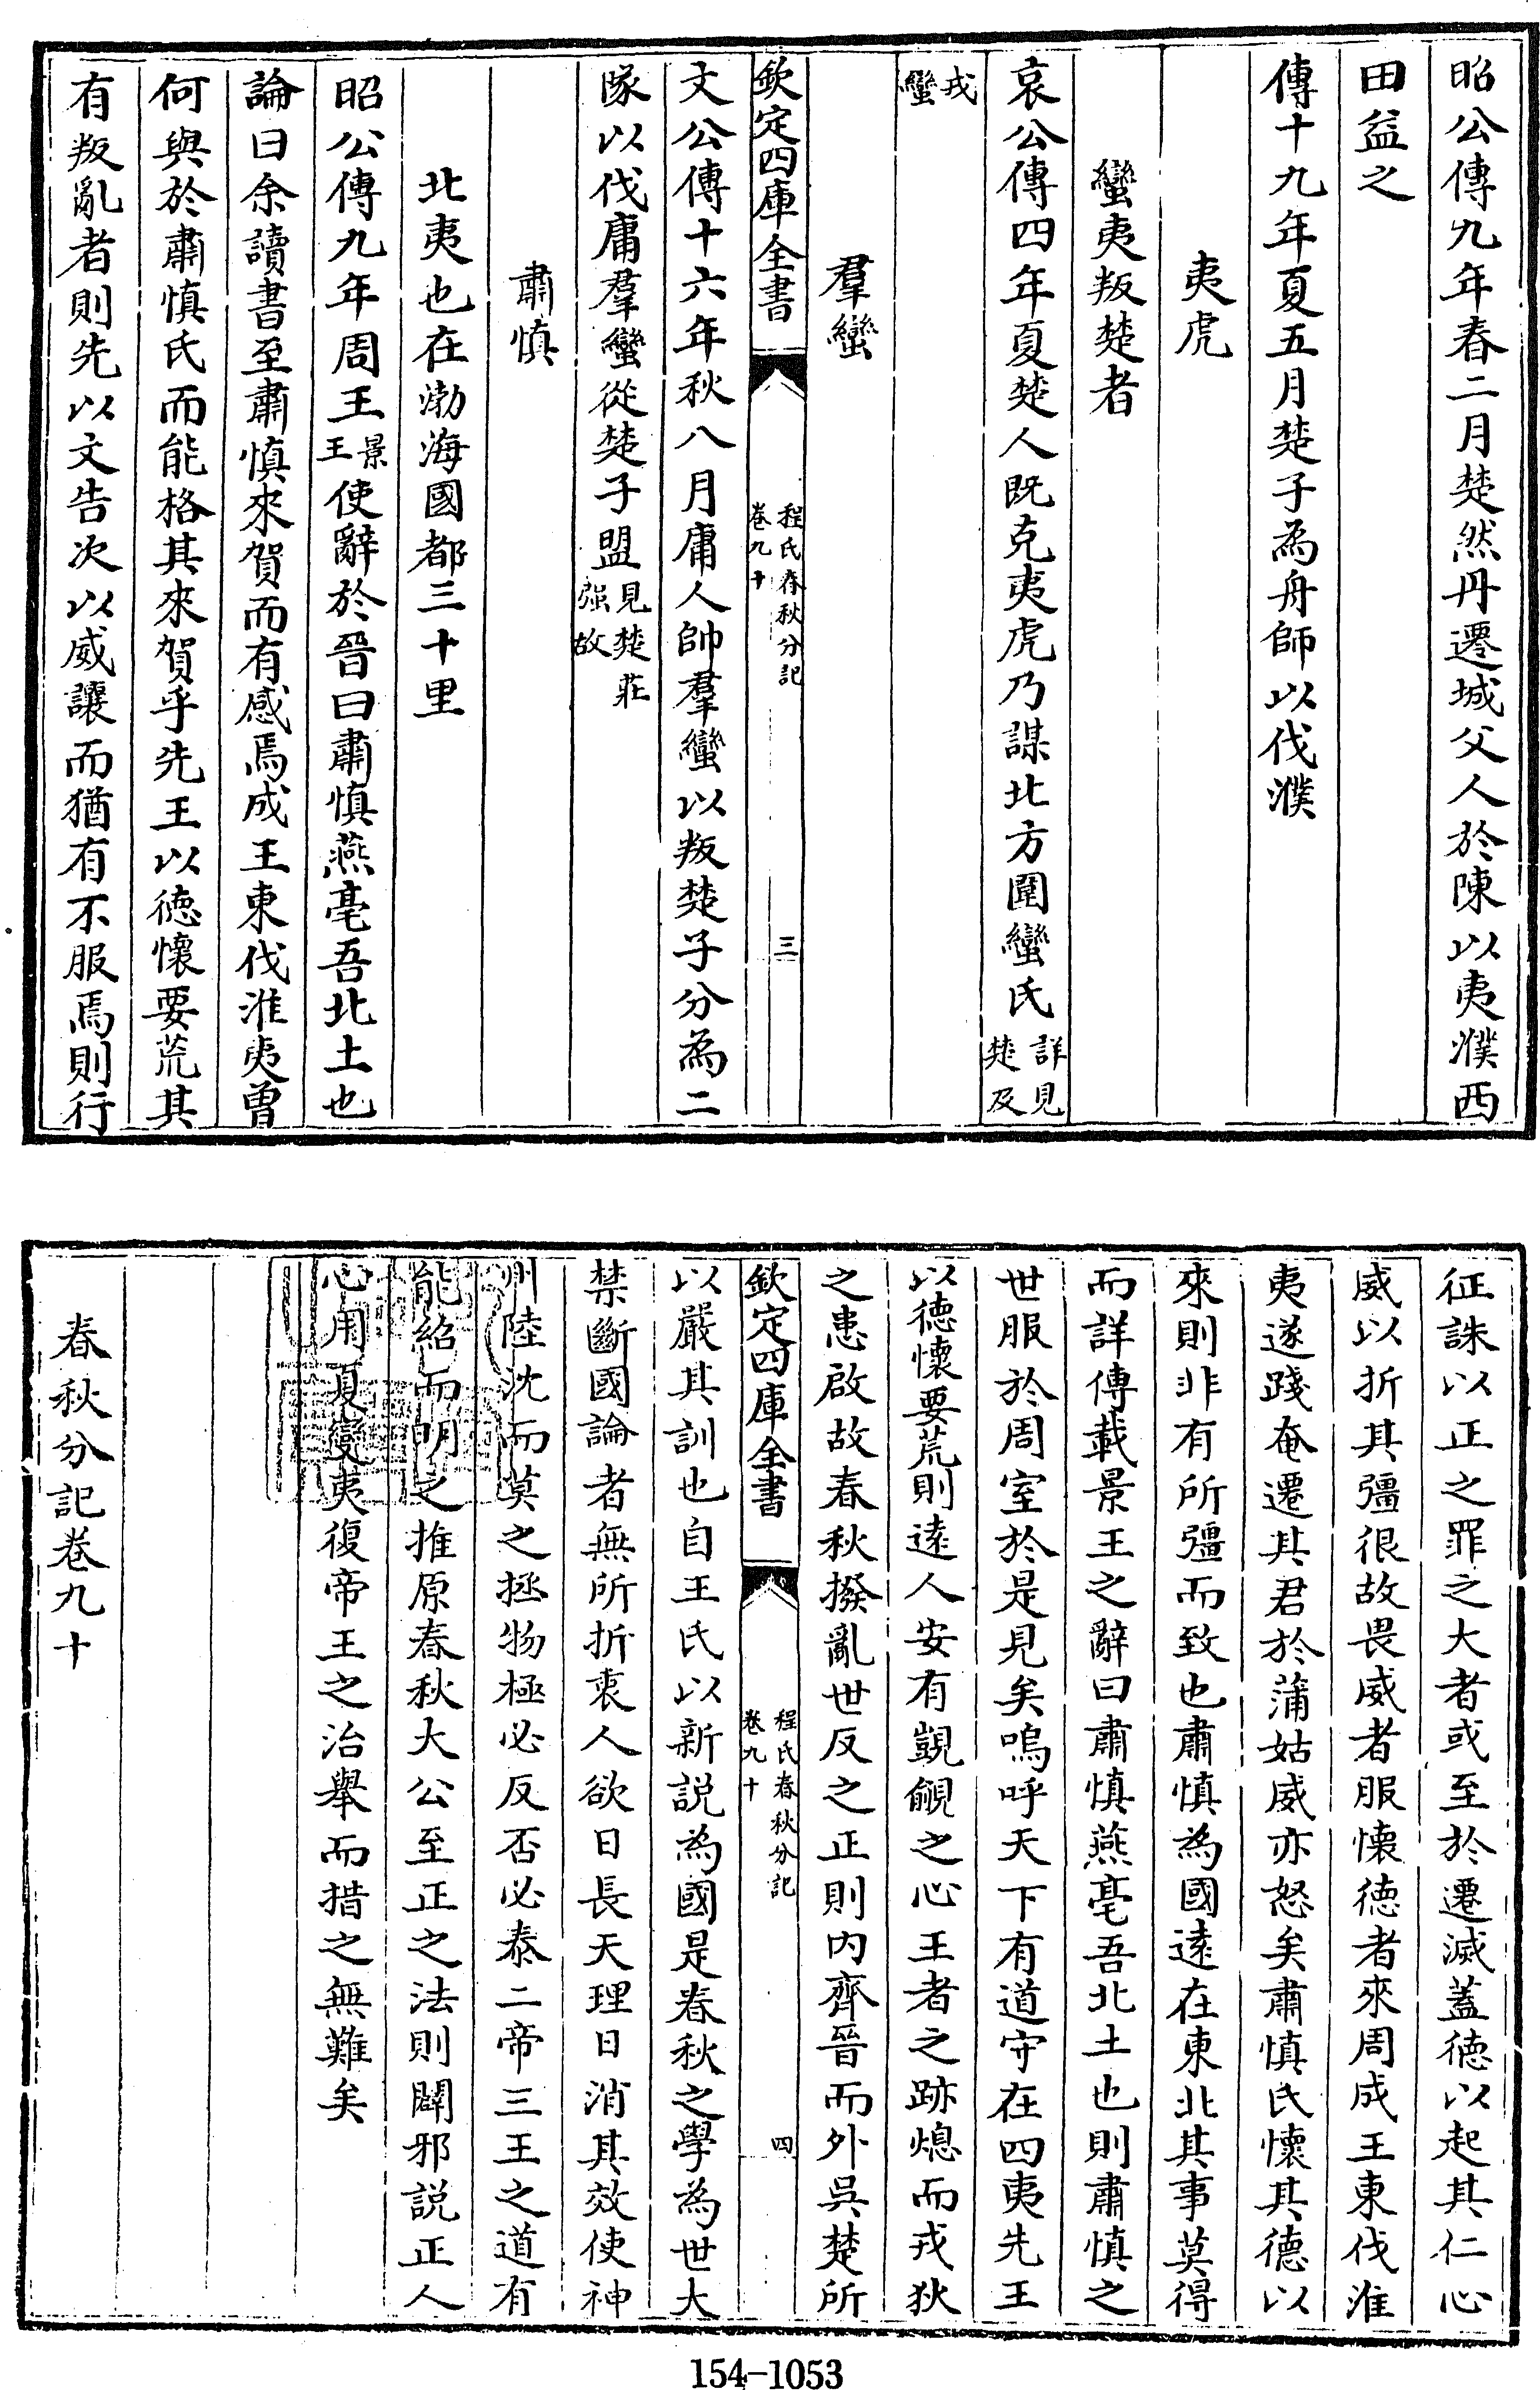 昭公傳九年春二月楚然丹遷城父人於陳以夷濮西
田益之
傳十九年夏五月楚子為舟師以伐濮
夷虎
蠻夷叛楚者
哀公傳四年夏楚人既克夷虎乃謀北方圍蠻氏詳見楚及
戎蠻
羣蠻
欽定四庫全書
程氏春秋分記
卷九十
三
文公傳十六年秋八月庸人帥羣蠻以叛楚子分為二
隊以伐庸羣蠻從楚子盟見楚莊強故
肅慎
北夷也在渤海國都三十里
昭公傳九年周王景王使辭於晉曰肅慎燕亳吾北土也
論曰余讀書至肅慎來賀而有感焉成王東伐淮夷曾
何與於肅慎氏而能格其來賀乎先王以德懷要荒其
有叛亂者則先以文告次以威讓而猶有不服焉則行
征誅以正之罪之大者或至於遷滅蓋德以起其仁心
威以折其彊很故畏威者服懷德者來周成王東伐淮
夷遂踐奄遷其君於蒲姑威亦怒矣肅慎氏懷其德以
來則非有所彊而致也肅慎為國遠在東北其事莫得
而詳傳載景王之辭曰肅慎燕亳吾北土也則肅慎之
世服於周室於是見矣嗚呼天下有道守在四夷先王
以德懷要荒則遠人安有覬覦之心王者之跡熄而戎狄
之患啟故春秋撥亂世反之正則內齊晉而外吳楚所
欽定四庫全書
程氏春秋分記
卷九十
四
以嚴其訓也自王氏以新説為國是春秋之學為世大
禁斷國論者無所折衷人欲日長天理日消其效使神
州陸沈而莫之拯物極必反否必泰二帝三王之道有
能紹而明之推原春秋大公至正之法則闢邪説正人
心用夏變夷復帝王之治舉而措之無難矣
春秋分記卷九十
154-1053